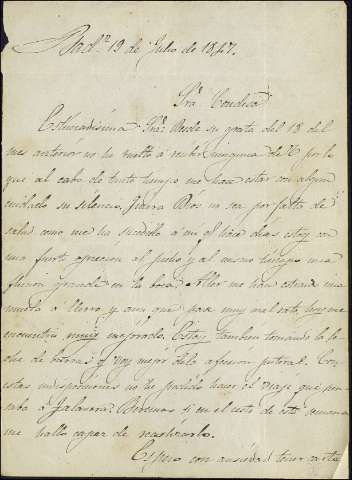 Mad.ᵈ 19 de Julio de 1847.
Sra. Condesa
Estimadisima Sra.: Desde su grata del 18 del
mes anterior no he vuelto á recibir ninguna de V. por lo
que al cabo de tanto tiempo me hace estar con algun
cuidado su silencio, quiera Dios no sea por falta de
salud como me ha sucedido á mi el hace dias estoy con
una fuerte opresion al pecho y al mismo tiempo una
fluxion grande en la boca. Aller me han estraido una
muela á llorro y aun que pase muy mal rato, hoy me
encuentro muy mejorado. Estoy tambien tomando la le-
che de burras y voy mejor de la afeccion pectoral. Con
estas indisposiciones no he podido hacer el viaje que pen-
saba á Talavera. Veremos si en el resto de esta semana
me hallo capaz de realizarlo.
Espero con ansiedad tener carta